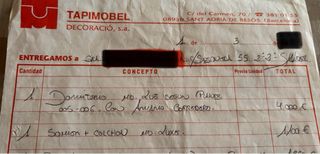 TAPIMOBEL
DECORACIÓ, s.a.
C/ del Carmen, 70 / ☎ 381 01 53
08930 SANT ADRIÀ DE BESÒS (Barcelona)
de 3 de
ENTREGAMOS a 55 3º 3ª
Cantidad CONCEPTO Precio Unidad TOTAL
1 DORMITORIO MO.
005-006. CON ARMARIO CORREDERAS. 4.000 €
1 SOMIER + COLCHON MO. 1100 €